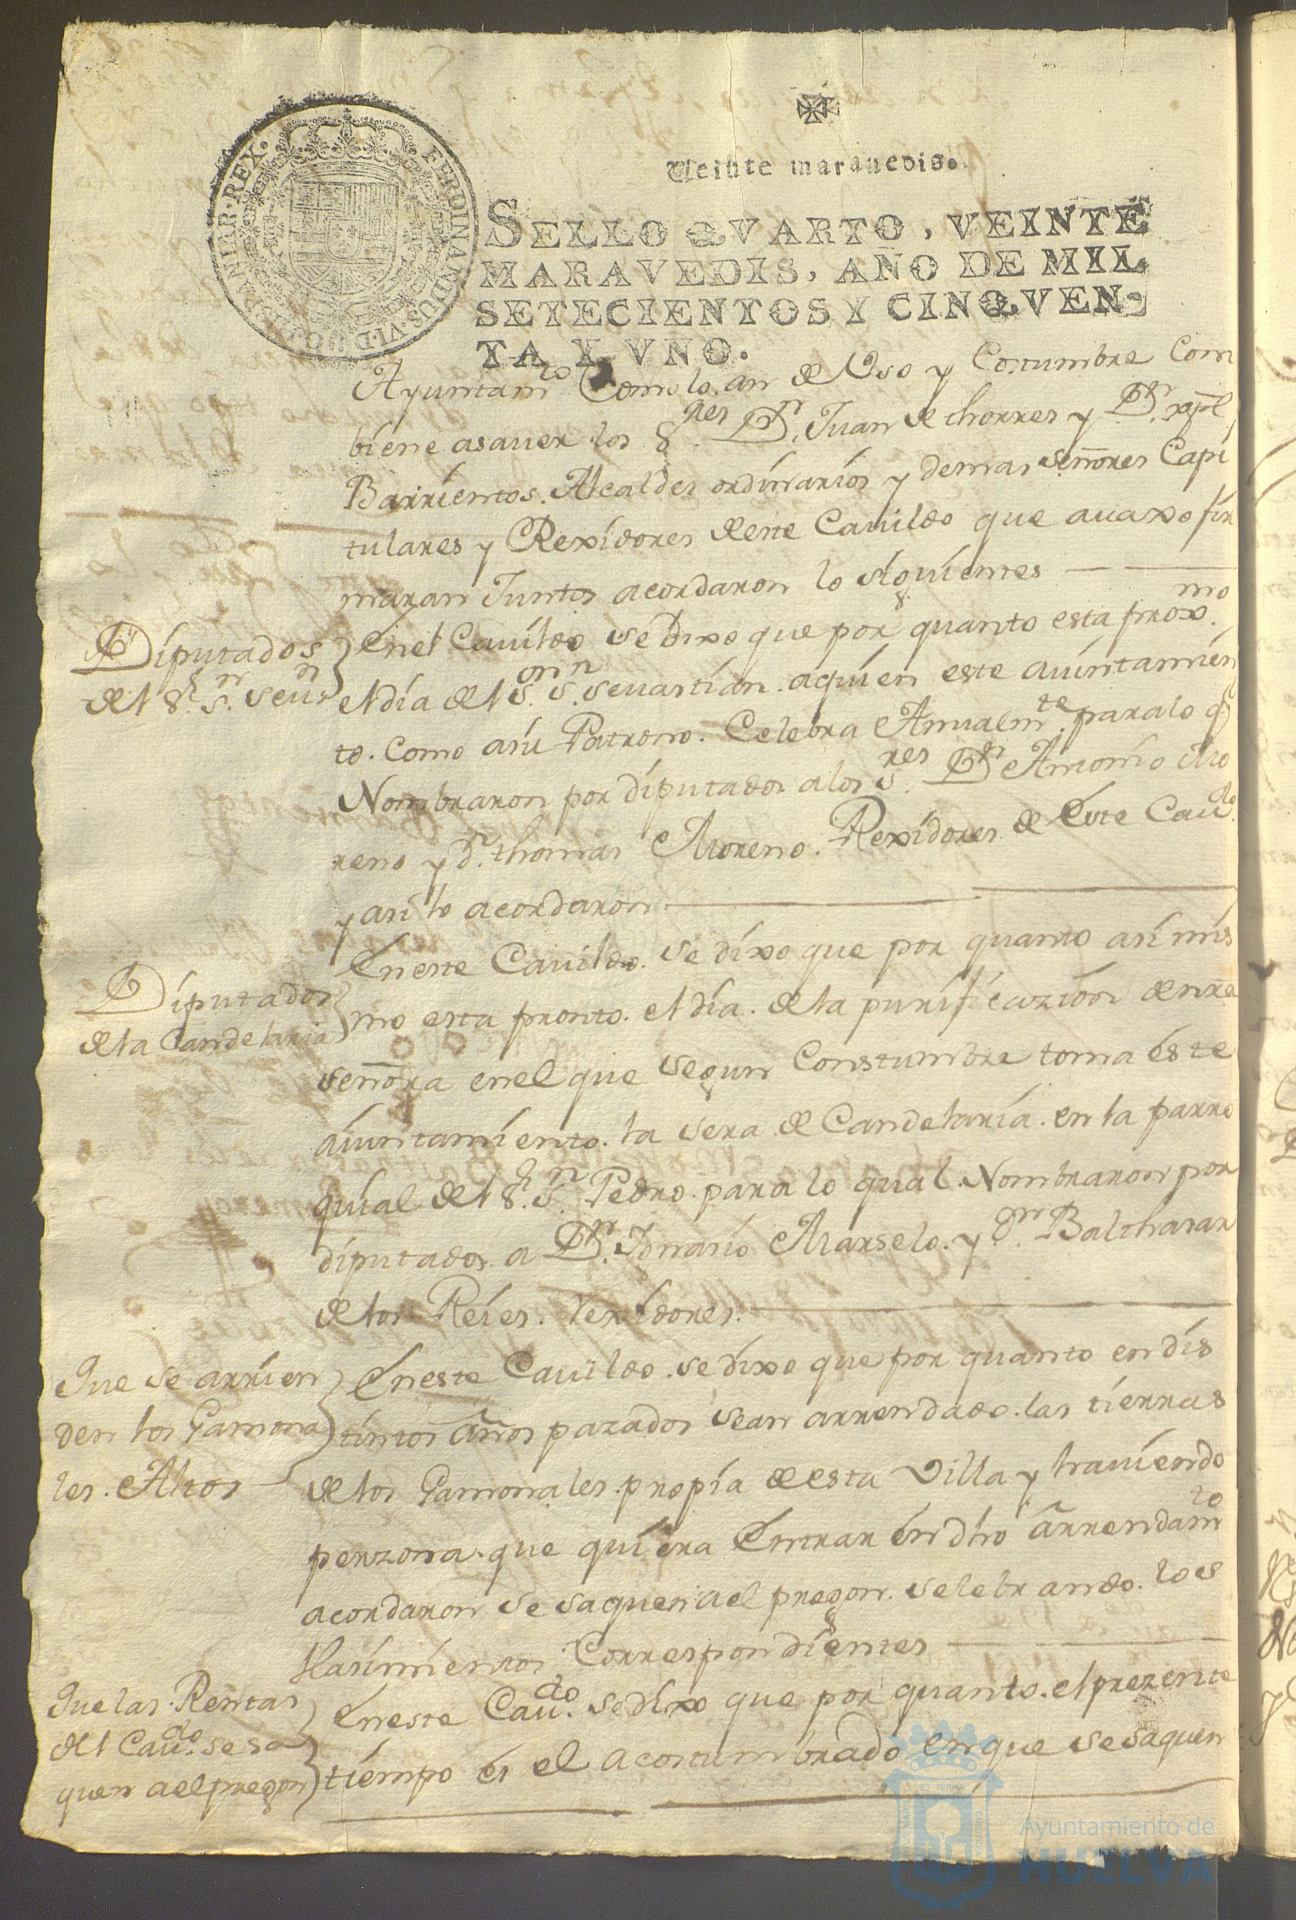 Veinte maravedis.
FERDINANDUS.VI.D.G.HISPANIAR.REX.
SELLO QVARTO, VEINTE
MARAVEDIS, AÑO DE MIL
SETECIENTOS Y CINQVEN-
TA Y VNO.
Ayuntamto Como lo an de Vso y Costumbre Com
biene asauer los Sres Dn Juan de thorres y Dn xptl
Barrientos. Alcaldes ordinarios y demas señores Capi
tulares y Rexidores deste Cauildo que auaxo fir
maran Juntos acordaron lo siguientes
Diputados
del Sr Sn Seun
En el Cauildo se Dixo que por quanto esta proxmo
el dia del Sor Sn Seuastian. aquien este auintamien
to. como asu Patrono. Celebra Anualmte para lo q
Nombraron por diputados a los Sres Dn Antonio Mo
reno y Dn thomas Moreno. Rexidores de Este Caudo
y asi lo acordaron
Diputados
de la Candelaria
En este Cauildo. se dixo que por quanto asi mis
mo esta pronto. el dia. de la purificazion de nra
señora en el que segun Constumbre toma este
aiuntamiento. la sera de Candelaria. en la parro
quial del Sr Sn Pedro. para lo qual. Nombraron por
diputados. a Dn Ignasio Marselo. y Dn Balthasar
de los Reies. rexidores.
Que se arrien
den los Gamona
les. Altos
En este Cauildo. se dixo que por quanto en dis
tintos años pazados sean arrendado. las tierras
de los Gamonales. propia de esta Villa y hauiendo
perzona. que quiera Entrar en dho arrendamto
acordaron se saquen ael pregon. selebrando. los
Hasimientos Correspondientes
Que las. Rentas
del Caudo. se sa
quen ael pregon
En este Caudo. se dixo que por quanto. el prezente
tiempo es el acostumbrado en que se saquen
Ayuntamiento de
HUELVA